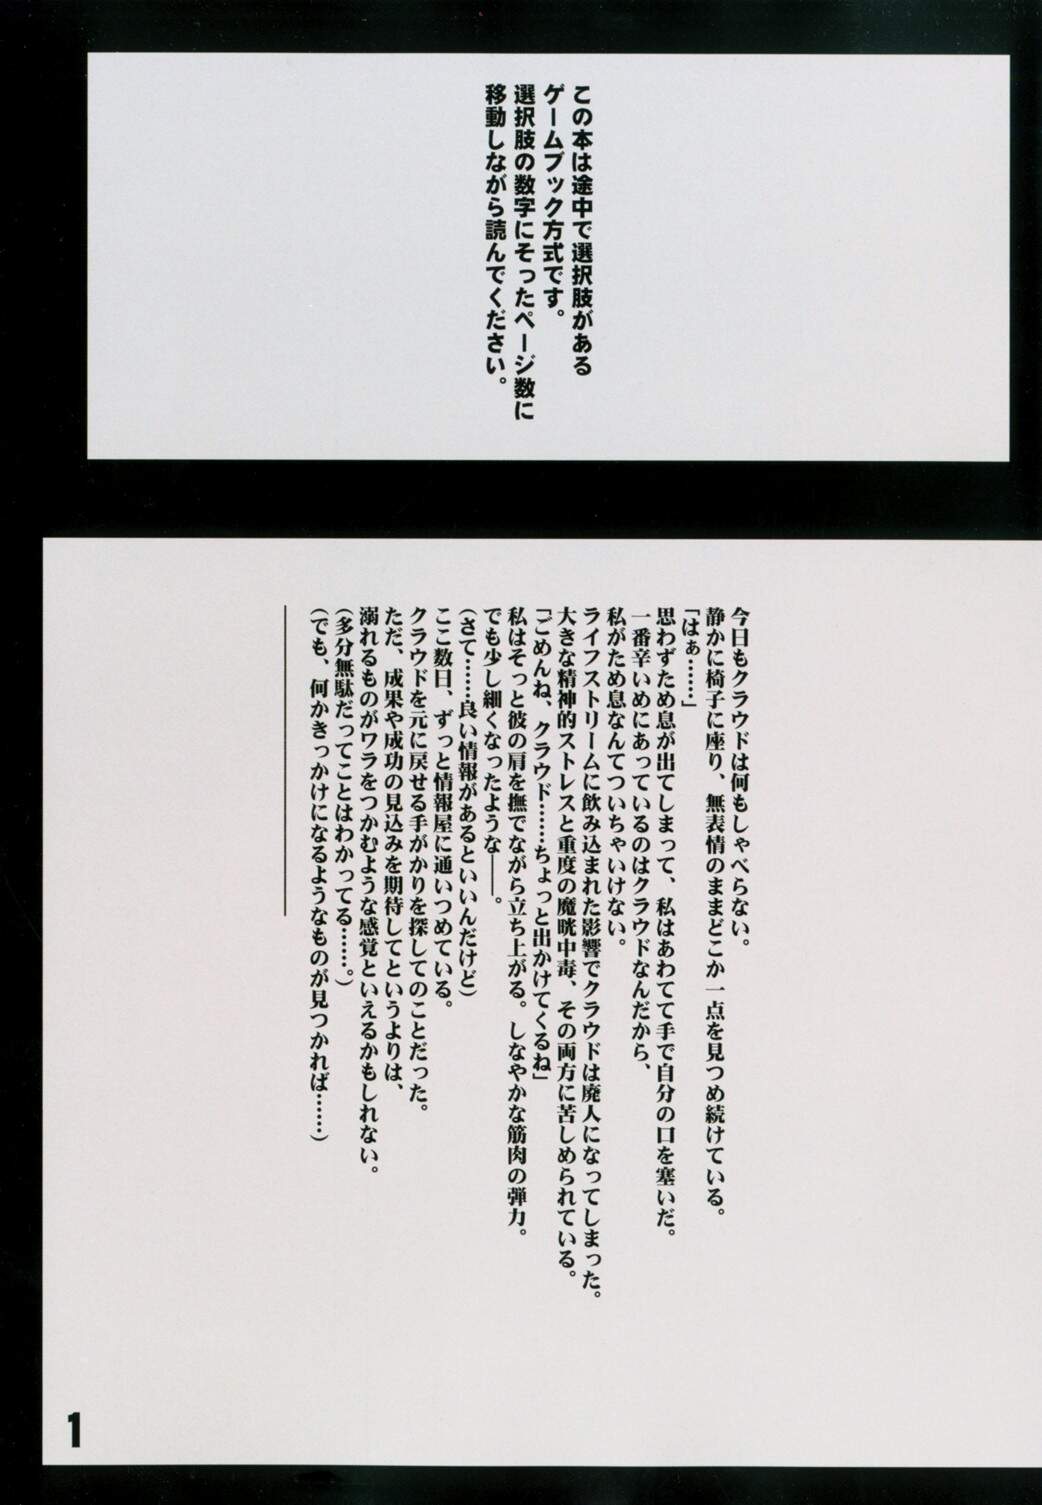 この本は途中で選択肢がある
ゲームブック方式です。
選択肢の数字にそったページ数に
移動しながら読んでください。
今日もクラウドは何もしゃべらない。
静かに椅子に座り、無表情のままどこか一点を見つめ続けている。
「はぁ……」
思わずため息が出てしまって、私はあわてて手で自分の口を塞いだ。
一番辛いめにあっているのはクラウドなんだから、
私がため息なんてついちゃいけない。
ライフストリームに飲み込まれた影響でクラウドは廃人になってしまった。
大きな精神的ストレスと重度の魔晄中毒、その両方に苦しめられている。
「ごめんね、クラウド……ちょっと出かけてくるね」
私はそっと彼の肩を撫でながら立ち上がる。しなやかな筋肉の弾力。
でも少し細くなったような――。
(さて……良い情報があるといいんだけど)
ここ数日、ずっと情報屋に通いつめている。
クラウドを元に戻せる手がかりを探してのことだった。
ただ、成果や成功の見込みを期待してというよりは、
溺れるものがワラをつかむような感覚といえるかもしれない。
(多分無駄だってことはわかってる……。)
(でも、何かきっかけになるようなものが見つかれば……)
1